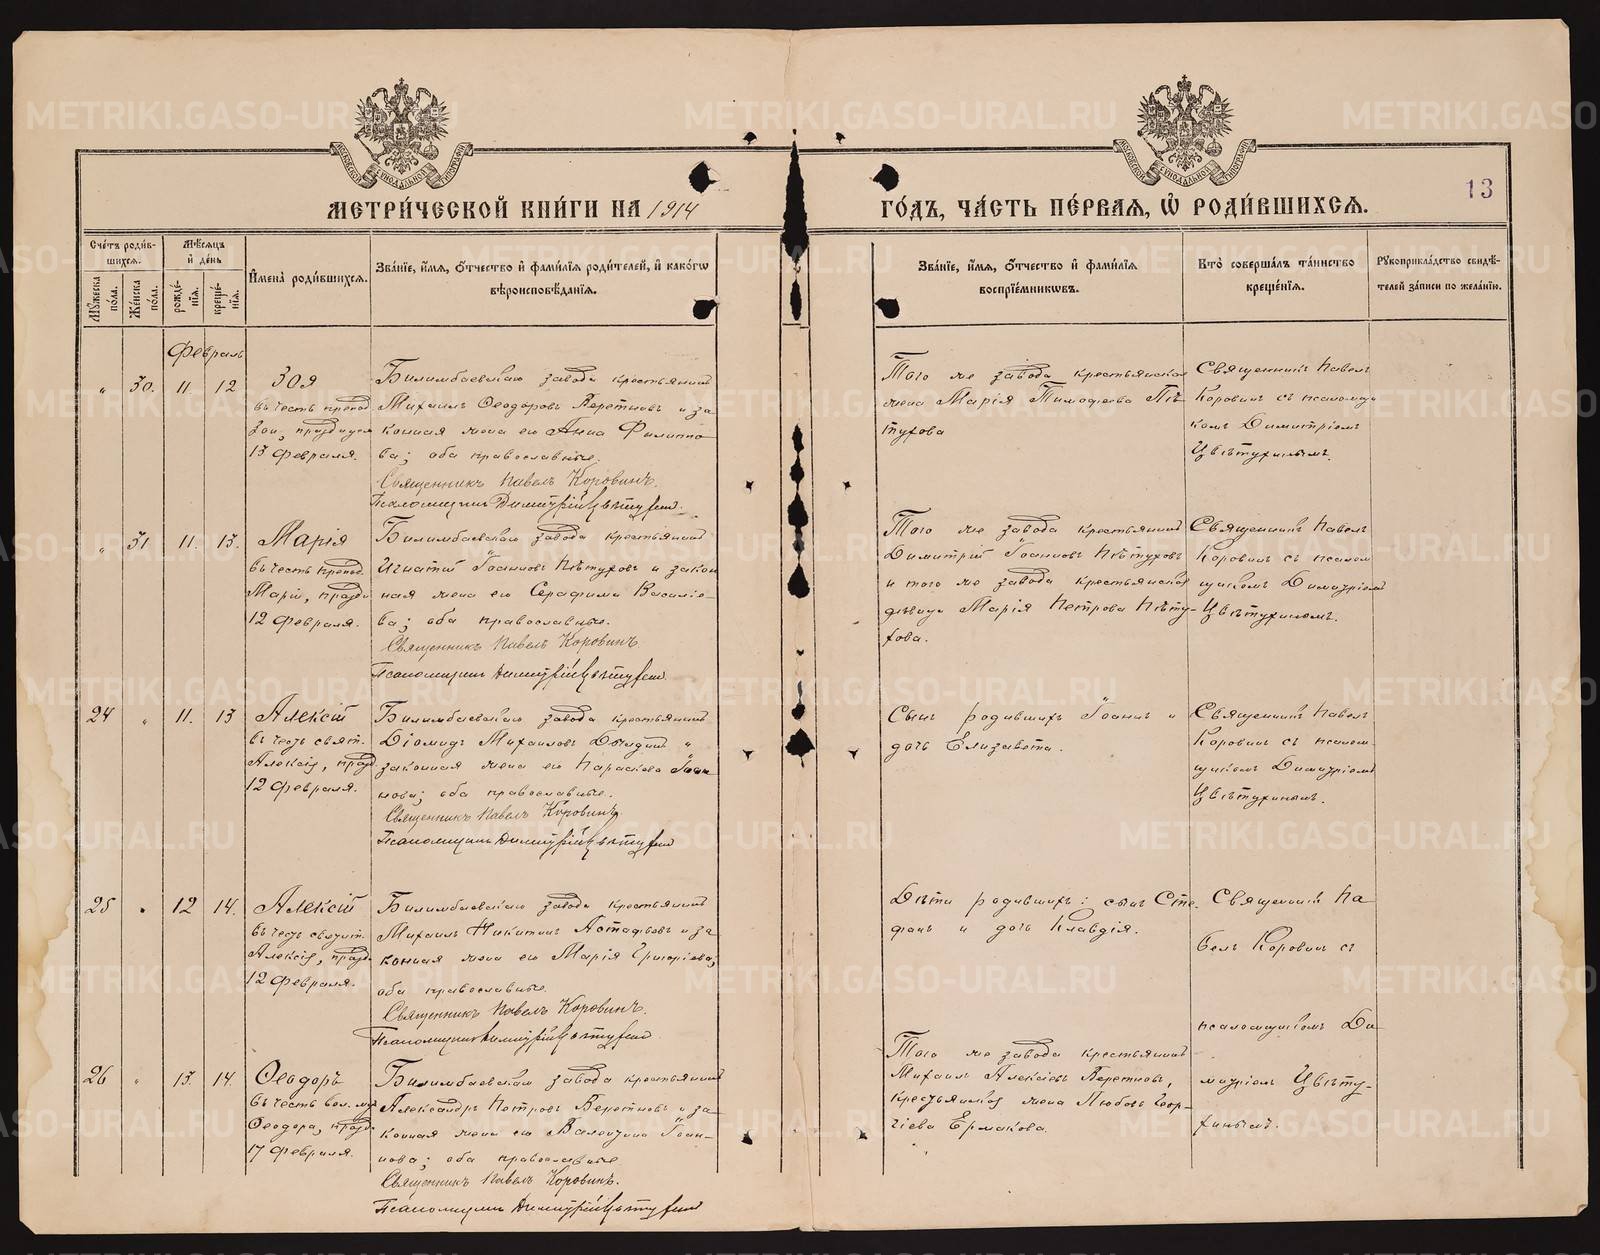 МОСКОВСКОЙ СѴНОДАЛЬНОЙ ТИПОГРАФІИ
МОСКОВСКОЙ СѴНОДАЛЬНОЙ ТИПОГРАФІИ
13
МЕТРИ́ЧЕСКОЙ КНИ́ГИ НА 1914
ГО́ДЪ, ЧА́СТЬ ПЕ́РВАЯ, Ѡ҆ РОДИ́ВШИХСЯ.
Сче́тъ роди́в-
шихся.
Мꙋ́жеска по́ла.
Же́нска по́ла.
Мѣ́сяцъ
и҆ де́нь
рожде́-
нїя.
креще́-
нїя.
И҆мена̀ роди́вшихся.
Зва́нїе, и҆́мя, ѻ҆́тчество и҆ фами́лїя роди́телей, и҆ како́гѡ
вѣроисповѣ́данїя.
Зва́нїе, и҆́мя, ѻ҆́тчество и҆ фами́лїя
воспрїе́мникѡвъ.
Кто̀ соверша́лъ та́инство
креще́нїя.
Рꙋкоприкла́дство свидѣ́-
телей за́писи по жела́нїю.
Февраль
„ 30. 11. 12
Зоя
въ честь препод.
Зои, празднуем
13 Февраля.
Билимбаевскаго завода крестьянинъ
Михаилъ Ѳеодоровъ Веретновъ и за
конная жена его Анна Филиппо
ва; оба православные.
Священникъ Павелъ Коровинъ.
Псаломщикъ Димитрій Цвѣтухин.
Того же завода крестьянская
жена Марія Тимофеева Пѣ
тухова
Священникъ Павелъ
Коровинъ съ псаломщи
комъ Димитріемъ
Цвѣтухинымъ.
„ 31 11. 13.
Марія
въ честь препод.
Маріи, праздн
12 Февраля.
Билимбаевскаго завода крестьянинъ
Игнатій Іоанновъ Пѣтуховъ и закон
ная жена его Серафима Василіе-
ва; оба православные.
Священникъ Павелъ Коровинъ.
Псаломщикъ Димитрій Цвѣтухин
Того же завода крестьянинъ
Димитрій Іоанновъ Пѣтуховъ
и того же завода крестьянская
дѣвица Марія Петрова Пѣту-
хова.
Священникъ Павелъ
Коровинъ съ псалом
щикомъ Димитріемъ
Цвѣтухинымъ.
24 „ 11. 13
Алексій
въ честь свят.
Алексія, празд
12 Февраля.
Билимбаевскаго завода крестьянинъ
Діомидъ Михаиловъ и
законная жена его Параскева Іоан
нова; оба православные.
Священникъ Павелъ Коровинъ.
Псаломщикъ Димитрій Цвѣтухин
Сынъ родившихъ Іоаннъ и
дочь Елизавета.
Священникъ Павелъ
Коровинъ съ псалом-
щикомъ Димитріемъ
Цвѣтухинымъ.
25 „ 12 14.
Алексій
въ честь святит.
Алексія, празд.
12 Февраля.
Билимбаевскаго завода крестьянинъ
Михаилъ Никитинъ Астафьевъ и за
конная жена его Марія Григоріева;
оба православные
Священникъ Павелъ Коровинъ.
Псаломщикъ Димитрій Цвѣтухин
Дѣти родившихъ: сынъ Сте-
фанъ и дочь Клавдія.
Священникъ Па
велъ Коровинъ съ
псаломщикомъ Ди
митріемъ Цвѣту-
хинымъ.
26 „ 13. 14.
Ѳеодоръ
въ честь вел. муч
Ѳеодора, празд.
17 Февраля.
Билимбаевскаго завода крестьянинъ
Александръ Петровъ Веретновъ и за-
конная жена его Валентина Іоан-
нова; оба православные
Священникъ Павелъ Коровинъ.
Псаломщикъ Димитрій Цвѣтухин
Того же завода крестьянинъ
Михаилъ Алексіевъ Веретновъ,
крестьянская жена Любовь Геор-
гіева Ермакова.
METRIKI.GASO-URAL.RU